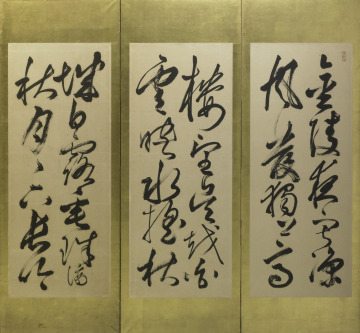 金陵夜寂涼
風發獨上高
樓望吳越白
雲映水搖秋
城白露垂珠滴
秋月々下長吟